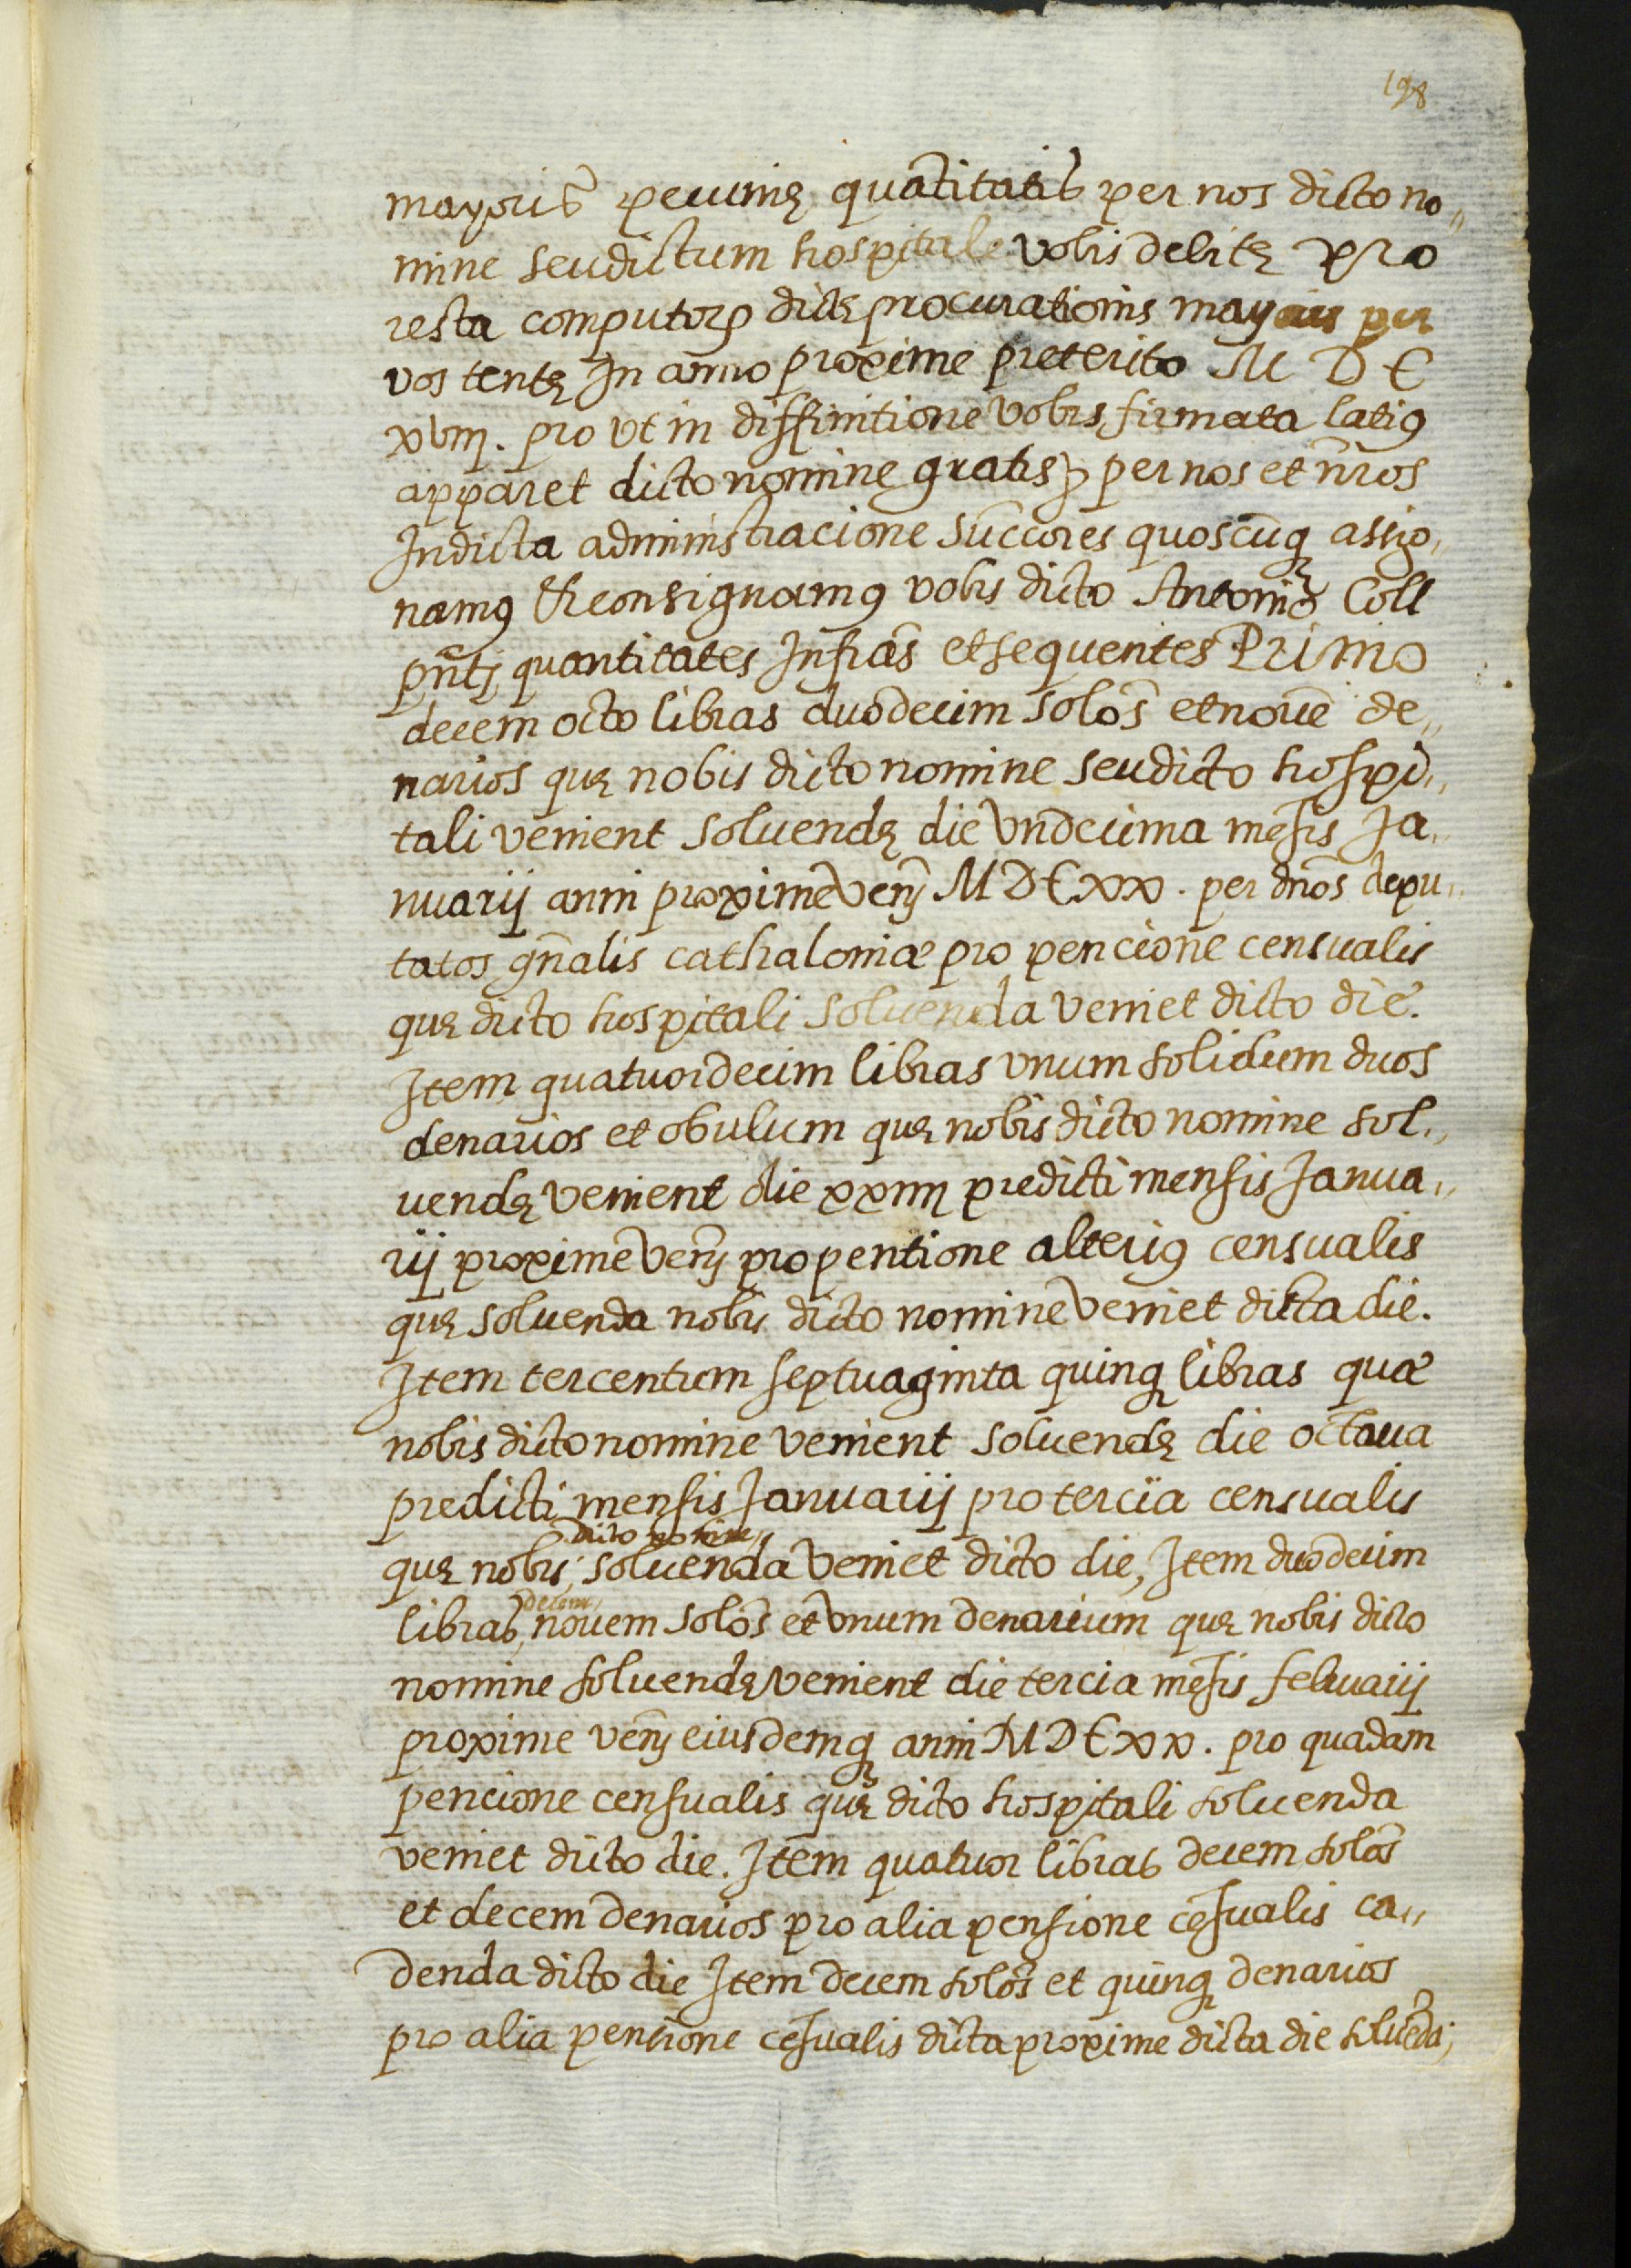 198
mayoris pecuniȩ quātitatis per nos dicto no„
mine seu dictum hospitale vobis debitȩ pro
resta computorꝝ dictȩ procurationis mayoris per
vos tentȩ In anno proxime preterito M D C
xviiij. pro vt in diffinitione vobis firmata latiꝰ
apparet dicto nomine gratis ꝛ per nos et nr̄os
In dicta administracione succ̄ores quoscūqȝ assig„
namꝰ & consignamꝰ vobis dicto Antonio Coll
pñti quantitates Infrās et sequentes Primo
decem octo libras duodecim solōs et nouē de„
narios quȩ nobis dicto nomine seu dicto hospi„
tali venient soluendȩ die vndecima mēsis Ja„
nuarij anni proxime venj̄ M D C xx. per dños depu„
tatos gñalis cathaloniæ pro pencione censualis
quȩ dicto hospitali soluenda veniet dicto die.
Item quatuordecim libras vnum solidum duos
denarios et obulum quȩ nobis dicto nomine sol„
uendȩ venient die xxiiij predicti mensis Janua„
rij proxime venj̄ pro pentione alteriꝰ censualis
quȩ soluenda nobis dicto nomine veniet dicta die.
Item tercentum septuaginta quinqȝ libras quæ
nobis dicto nomine venient soluendȩ die octaua
predicti mensis Januarij pro tercia censualis
dicto nomine,
quȩ nobis, soluenda veniet dicto die, Item duodecim
decem,
libras, nouem solōs et vnum denarium quȩ nobis dicto
nomine soluendȩ venient die tercia mēsis februarij
proxime venj̄ eiusdemqȝ anni M D C xx. pro quadam
pencione censualis quȩ dicto hospitali soluenda
veniet dicto die. Item quatuor libras decem solōs
et decem denarios pro alia pensione cēsualis ca„
denda dicto die Item decem solōs et quinqȝ denarios
pro alia pencione cēsualis dicta proxime dicta die soluēda;